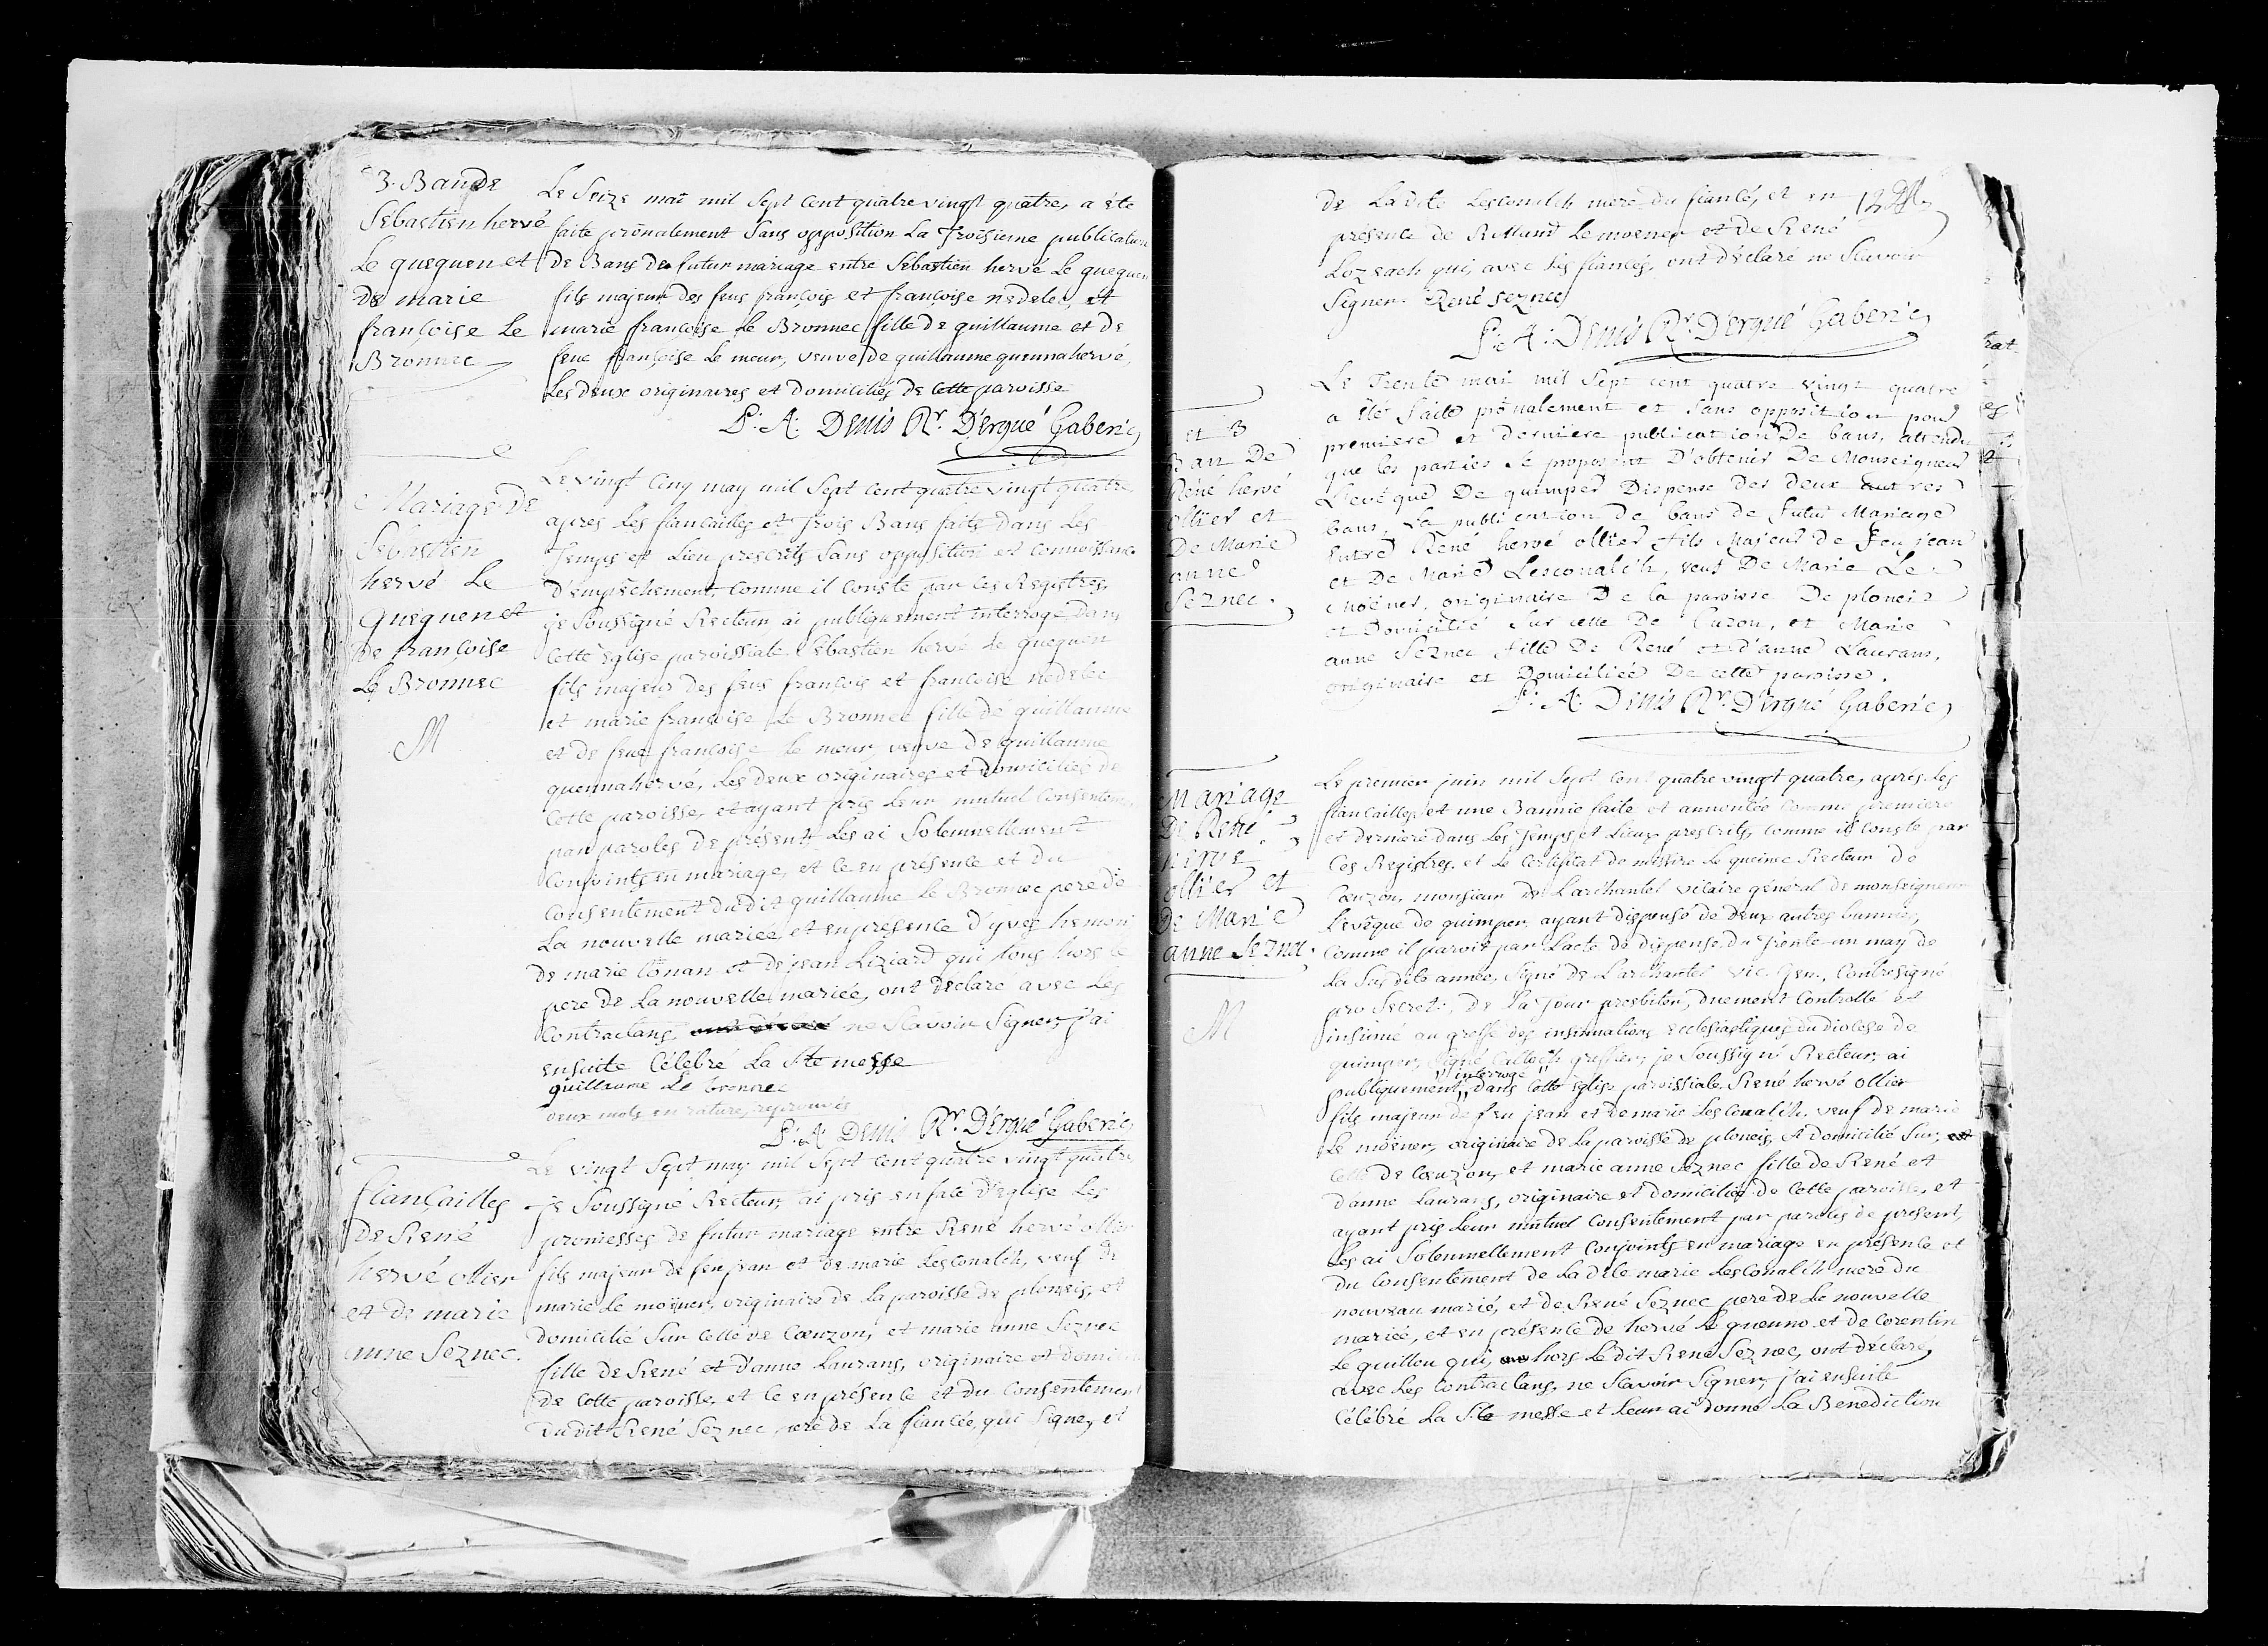 3. Ban de
Sebastien hervé
Le quequen et
de marie
françoise Le
Bronnec
Le Seize mai mil Sept Cent quatre vingt quatre, a été
faite prônalement Sans opposition La Troisieme publication
de Bans de futur mariage entre Sebastien hervé Le quequen
fils majeur des feus françois et françoise nedelec, et
marie françoise Le Bronnec fille de guillaume et de
feue françoise Le meur, veuve de guillaume quennahervé,
Les deux originaires et domiciliés de Cette paroisse
P: A: Denis Rr. D'ergué Gaberic
Mariage de
Sebastien
hervé Le
Quequen et
de françoise
Le Bronnec
M
Le vingt Cinq may mil Sept Cent quatre vingt quatre,
apres Les fiancailles et trois Bans faits dans Les
Temps et Lieu prescrits Sans opposition et Connoissance
d'empêchement, Comme il Conste par Ces Registres,
je Soussigné Recteur ai publiquement interrogé dans
Cette Eglise paroissiale Sebastien hervé Le quequen
fils majeur des feus françois et françoise nedelec
et marie françoise Le Bronnec fille de guillaume
et de feue françoise Le meur, veuve de guillaume
quennahervé, Les deux originaires et domiciliés de
Cette paroisse, et ayant pris Leur mutuel Consentement
par paroles de présent, Les ai Solemnellement
Conjoints en mariage, et Ce en présence et du
Consentement dudit guillaume Le Bronnec pere de
La nouvelle mariée, et en présence d'yves hemon
de marie Conan et de jean Liziard qui tous hors le
pere de La nouvelle mariée, ont declaré avec Les
Contractans ne Scavoir Signer, j'ai
ensuite Célébré La Ste messe
guillaume Le bronnec
deux mots en rature, reprouvés
P: A: Denis Rr. D'Ergué Gaberic
fiançailles
de René
hervé ollier
et de marie
anne Seznec.
Le vingt Sept may mil Sept Cent quatre vingt quatre,
je Soussigné Recteur, ai pris en face d'eglise Les
promesses de futur mariage entre René hervé ollier
fils majeur de feu jean et de marie Lesconalch, veuf de
marie Le moëner, originaire de La paroisse de ploneis, et
domicilié Sur Celle de Cœuzon, et marie anne Seznec
fille de René et d'anne Laurans, originaire et domiciliée
de Cette paroisse, et Ce en présence et du Consentement
dudit René Seznec pere de La fiancée, qui Signe, et
de Ladite Lesconalch mere du fiancé, et en
présence de Rolland Le moener et de René
Lozeach qui, avec Les fiancés, ont déclaré ne Scavoir
Signer. René Seznec
12
P: A: Denis Rr. D'ergué Gaberic
et 3
Ban De
René hervé
ollier et
De Marie
anne
Seznec.
Le Trente mai mil Sept cent quatre vingt quatre
a été faite prônalement et sans opposition pour
premiere et derniere publication De bans, attendu
que les parties se proposent D'obtenir De Monseigneur
L'evêque De quimper Dispense des deux autres
bans, La publication de bans de futur Mariage
entre René hervé ollier fils Majeur de Feu jean
et De Marie Lesconalch, veuf De Marie Le
Moëner, originaire De la paroisse De ploneis
et Domicilié sur celle De Cuzon, et Marie
anne Seznec fille De René et d'anne Laurans,
originaire et Domiciliée De cette paroisse.
P: A: Denis Rr. D'ergué Gaberic
Mariage
De René
herve
ollier et
de Marie
anne Seznec.
M
Le premier juin mil Sept Cent quatre vingt quatre, apres Les
fiancailles et une Bannie faite et annoncée Comme premiere
et derniere dans Les Temps et Lieux prescrits, Comme il Conste par
Ces Registres et Le Certificat de messire Le queinec Recteur de
Cœuzon, monsieur de Larchantel vicaire général de monseigneur
L'evêque de quimper ayant dispensé de deux autres bannies,
Comme il paroit par L'acte de dispense du Trente-un may de
La Susdite année, Signé de Larchantel vic. gen., Contresigné
pro Secret., de La Jour presbiter, duement Controllé et
insinué au greffe des insinuations Ecclesiastiques du diocese de
quimper, Signé Calloch greffier, je Soussigné Recteur, ai
publiquement "interrogé" dans Cette Eglise paroissiale René hervé ollier
fils majeur de feu jean et de marie Lesconalch, veuf de marie
Le moëner, originaire de La paroisse de ploneis, et domicilié Sur
Celle de Cœuzon, et marie anne Seznec fille de René et
d'anne Laurans, originaire et domiciliée de Cette paroisse, et
ayant pris Leur mutuel Consentement par paroles de present,
Les ai Solemnellement Conjoints en mariage en présence et
du Consentement de Ladite marie Lesconalch mere du
nouveau marié, et de René Seznec pere de Le nouvelle
mariée, et en présence de hervé Le guenno et de Corentin
Le quilleu qui, hors Le dit René Seznec, ont déclaré
avec Les Contractans, ne Scavoir Signer, j'ai ensuite
Célébré La Ste messe et Leur ai donné La Benediction